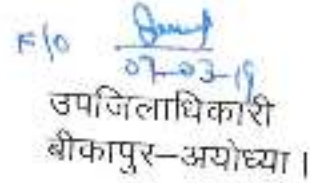 F/o
07-03-19
उपजिलाधिकारी
बीकापुर–अयोध्या।